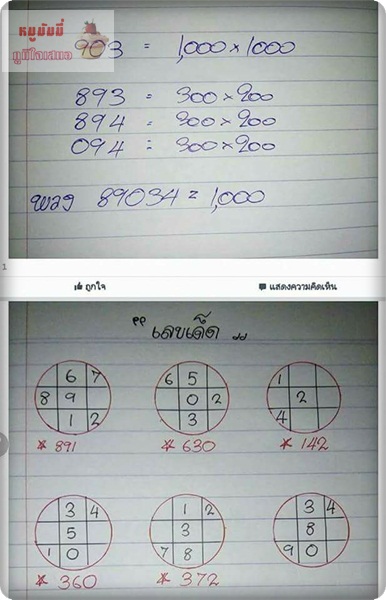 หมูมัมมี่
ภูมิใจเสนอ
903 = 1,000×1000
893 = 300×200
894 = 300×200
094 = 300×200
พวง 89034 = 1,000
1
ถูกใจ
แสดงความคิดเห็น
" เลขเด็ด "
6 7
8 9
1 2
* 891
6 5
0 2
3
* 630
1
2
4
* 142
3 4
5
1 0
* 360
1 2
3
7 8
* 372
3 4
8
9 0